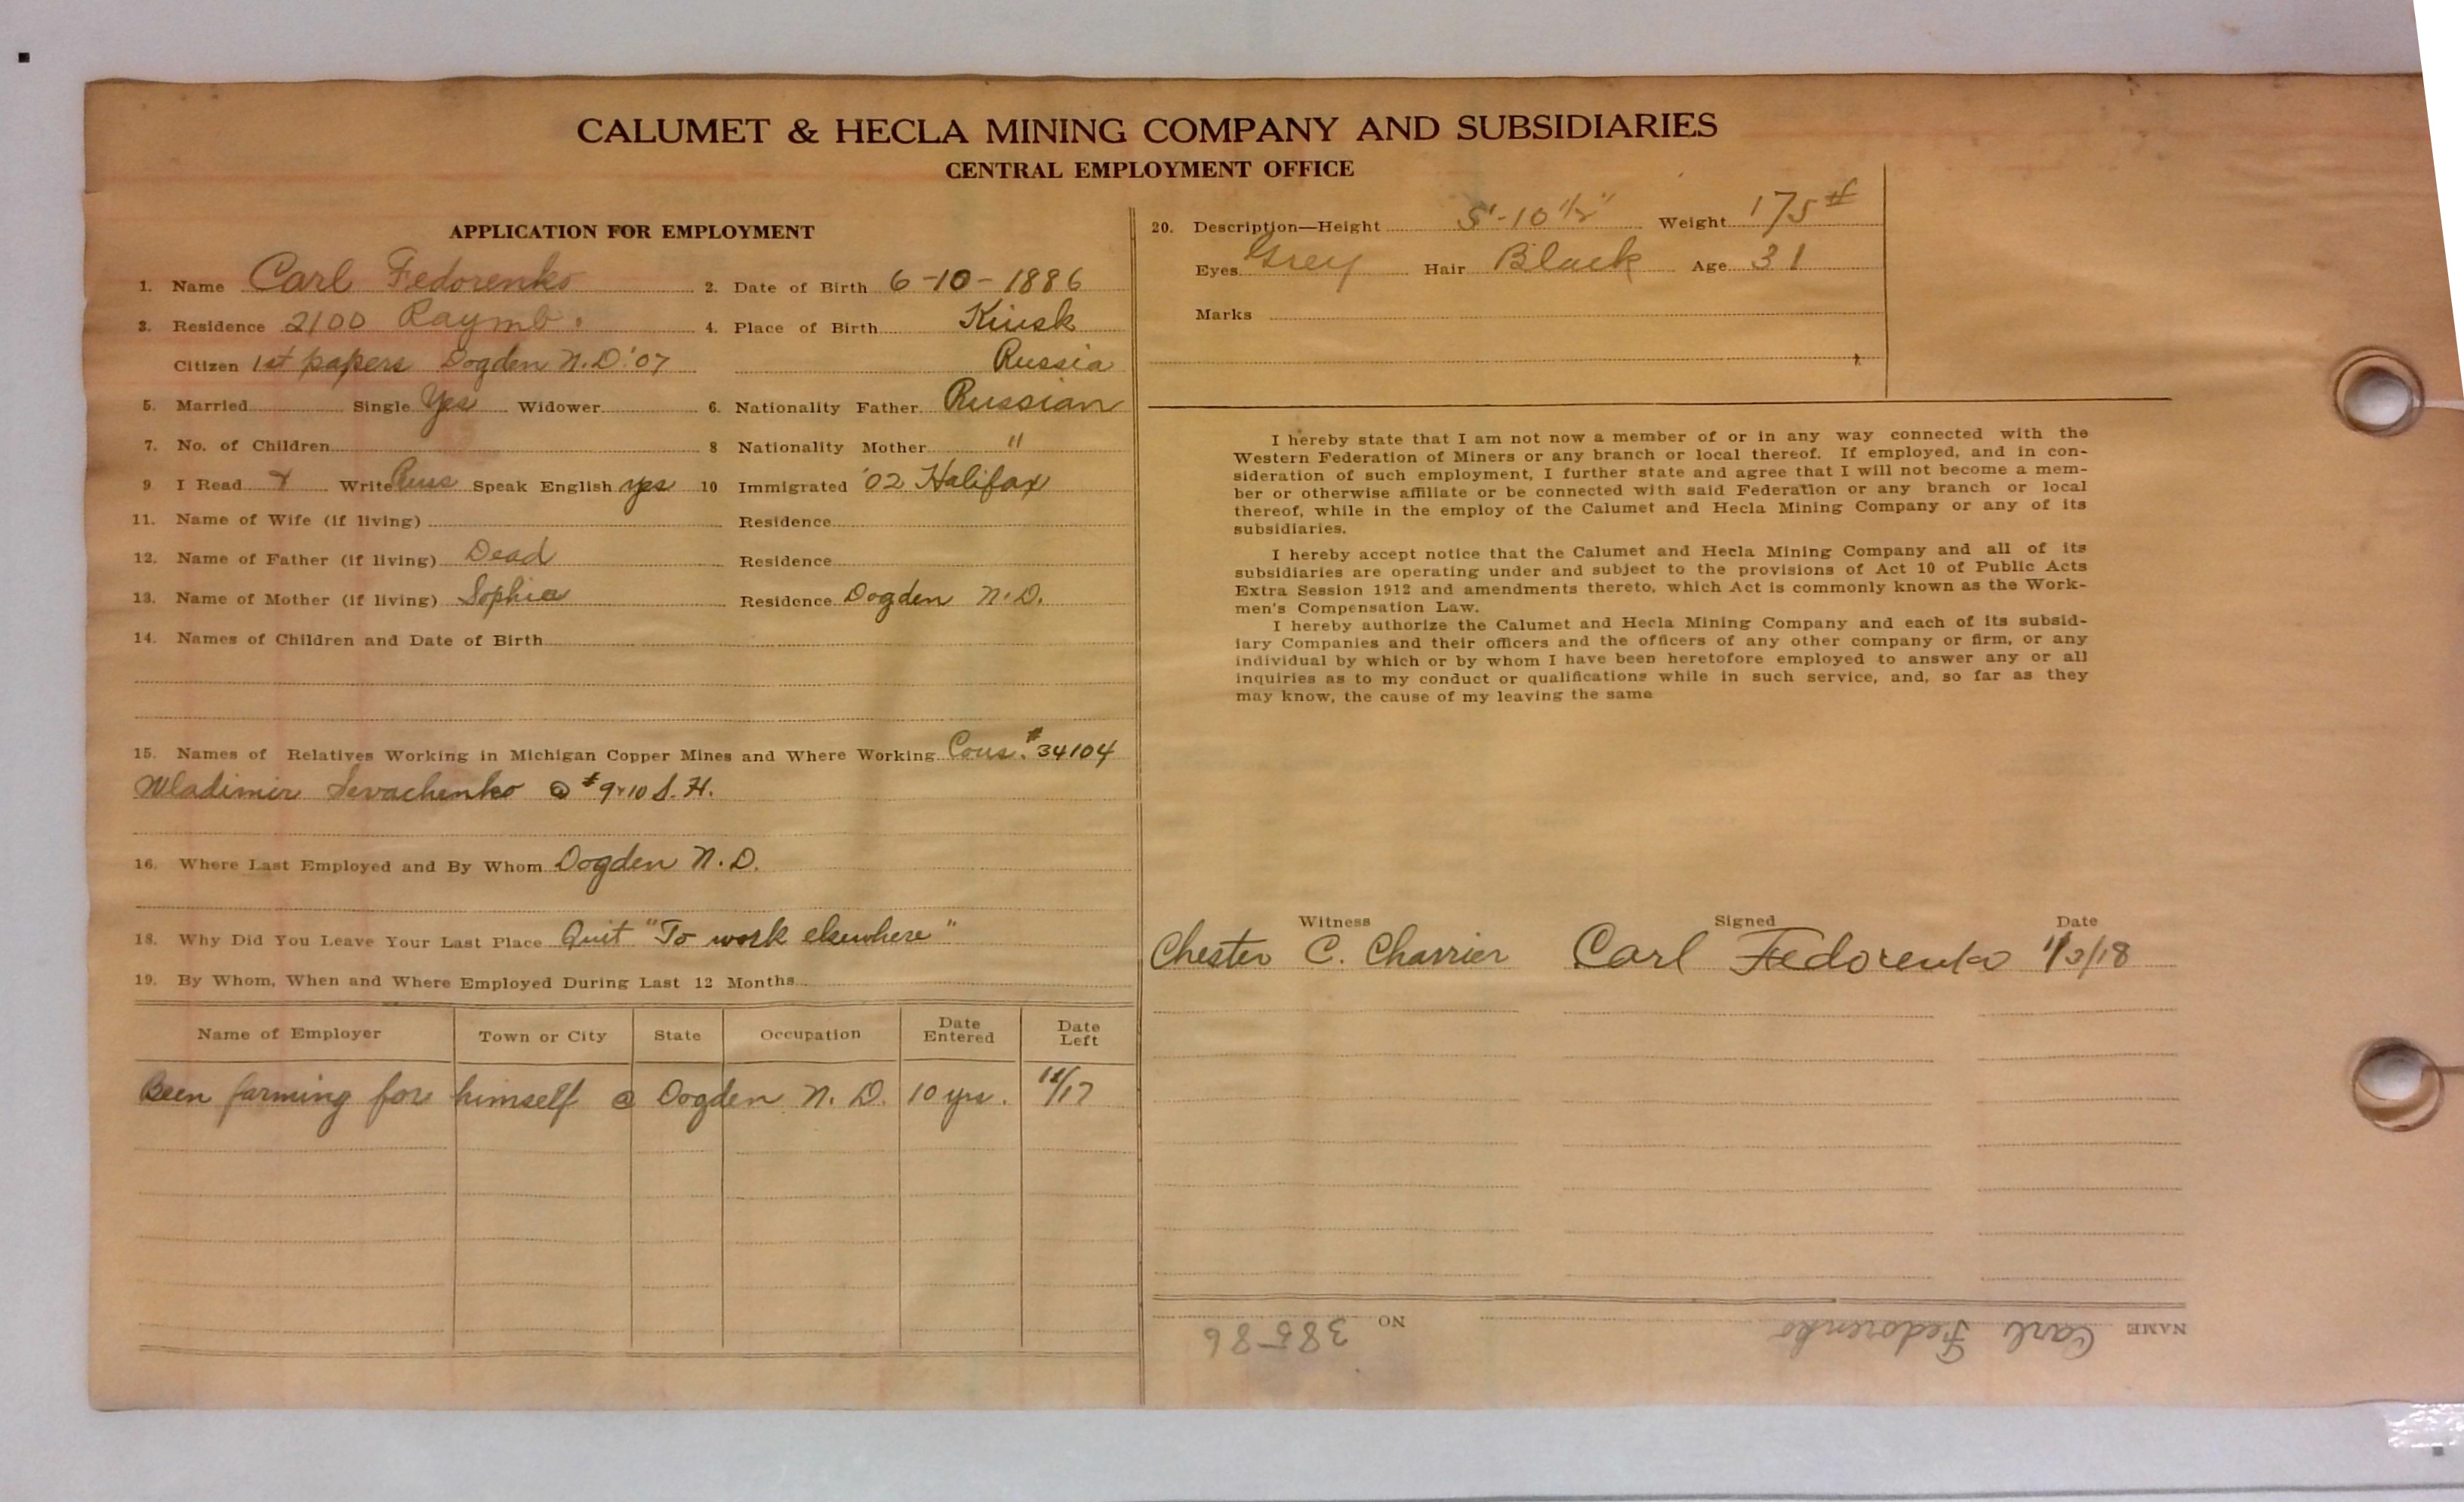 CALUMET & HECLA MINING COMPANY AND SUBSIDIARIES
CENTRAL EMPLOYMENT OFFICE
APPLICATION FOR EMPLOYMENT
1. Name Carl Fedorenko 2. Date of Birth 6-10-1886
3. Residence 2100 Raymb. 4. Place of Birth
Citizen 1st papers Dogden N.D. '07 Russia
5. Married Single Yes Widower 6. Nationality Father Russian
7. No. of Children 8 Nationality Mother "
9 I Read & Write Russ Speak English yes 10 Immigrated '02 Halifax
11. Name of Wife (if living) Residence
12. Name of Father (if living) Dead Residence
13. Name of Mother (if living) Sophia Residence Dogden N.D.
14. Names of Children and Date of Birth
15. Names of Relatives Working in Michigan Copper Mines and Where Working Cous. #34104
Wladimir @ #9+10 S.H.
16. Where Last Employed and By Whom Dogden N.D.
18. Why Did You Leave Your Last Place Quit "To work elsewhere"
19. By Whom, When and Where Employed During Last 12 Months
Name of Employer Town or City State Occupation Date Entered Date Left
Been farming for himself @ Dogden N.D. 10 yrs.
20. Description—Height 5'-10 1/2" Weight 175#
Eyes Grey Hair Black Age 31
Marks
I hereby state that I am not now a member of or in any way connected with the
Western Federation of Miners or any branch or local thereof. If employed, and in con-
sideration of such employment, I further state and agree that I will not become a mem-
ber or otherwise affiliate or be connected with said Federation or any branch or local
thereof, while in the employ of the Calumet and Hecla Mining Company or any of its
subsidiaries.
I hereby accept notice that the Calumet and Hecla Mining Company and all of its
subsidiaries are operating under and subject to the provisions of Act 10 of Public Acts
Extra Session 1912 and amendments thereto, which Act is commonly known as the Work-
men's Compensation Law.
I hereby authorize the Calumet and Hecla Mining Company and each of its subsid-
iary Companies and their officers and the officers of any other company or firm, or any
individual by which or by whom I have been heretofore employed to answer any or all
inquiries as to my conduct or qualifications while in such service, and, so far as they
may know, the cause of my leaving the same
Witness Signed Date
Chester C. Charrier Carl Fedorenko
NAME Carl Fedorenko NO 38586